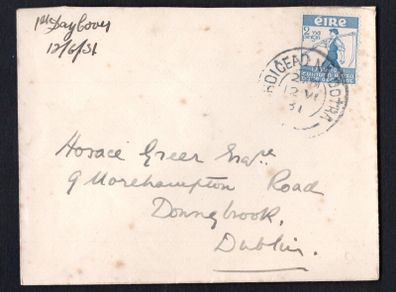 1st Day Cover
12/6/31
ÉIRE
2
DROICEAD NA DOTHRA
12 VI
31
Horace Greer Esqre
9 Morehampton Road
Donnybrook,
Dublin.